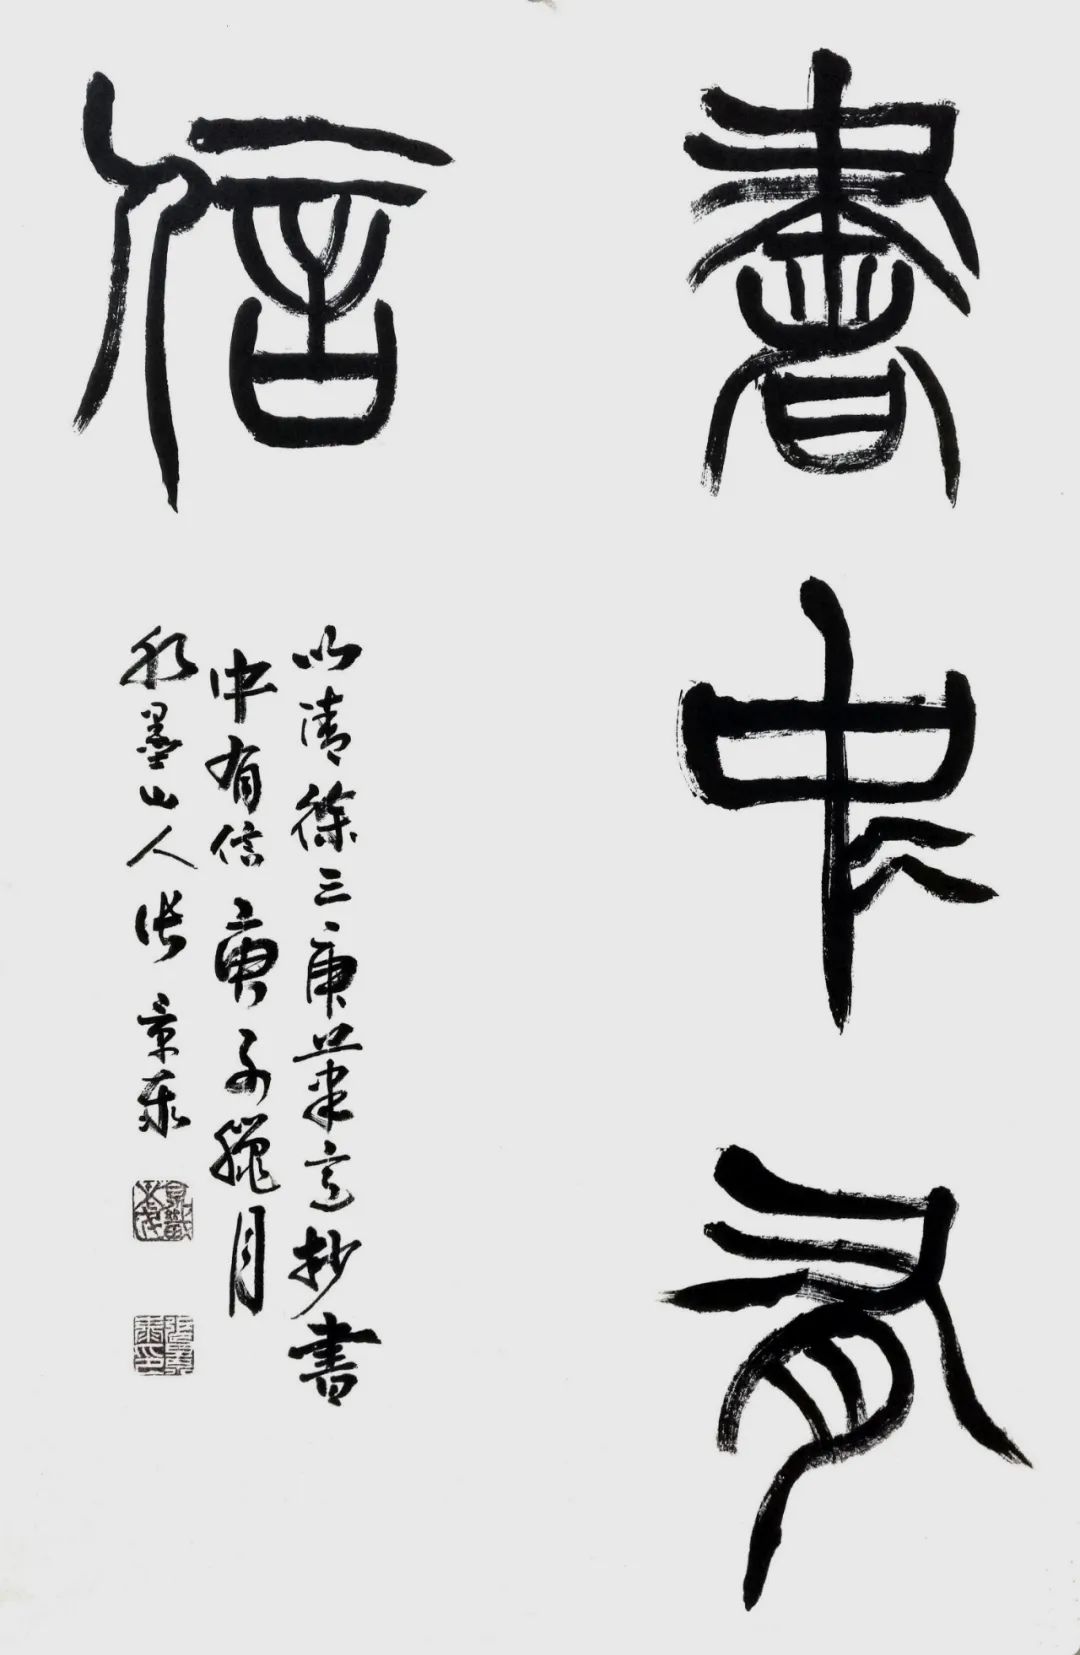 書中有
信
以清徐三庚筆意抄書
中有信庚子臘月
秋墨山人張景